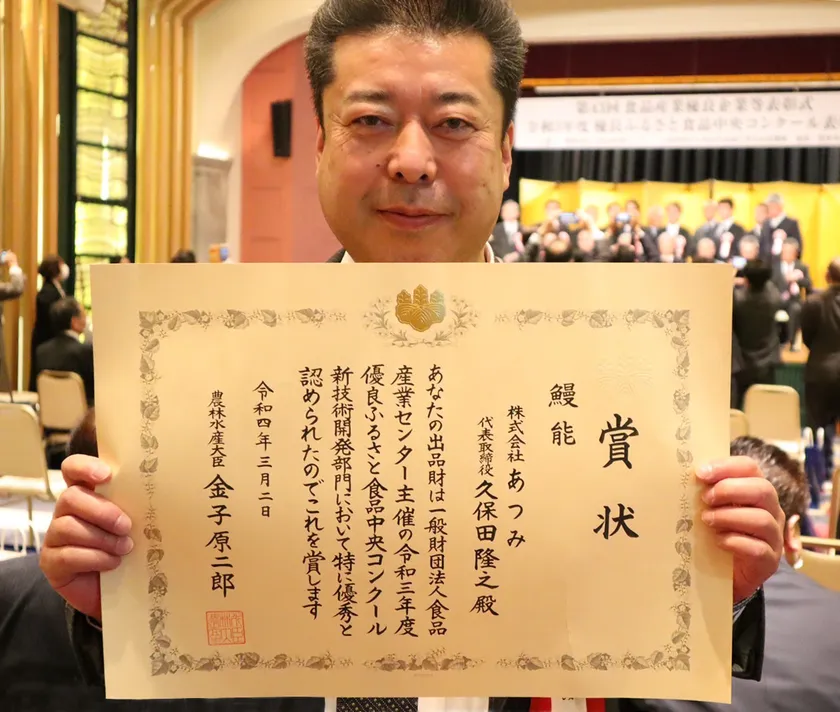 第43回 食品産業優良企業等表彰式
令和3年度 優良ふるさと食品中央コンクール表
賞状
鰻能
株式会社 あつみ
代表取締役 久保田隆之殿
あなたの出品財は一般財団法人食品
産業センター主催の令和三年度
優良ふるさと食品中央コンクール
新技術開発部門において特に優秀と
認められたのでこれを賞します
令和四年三月二日
農林水産大臣 金子原二郎